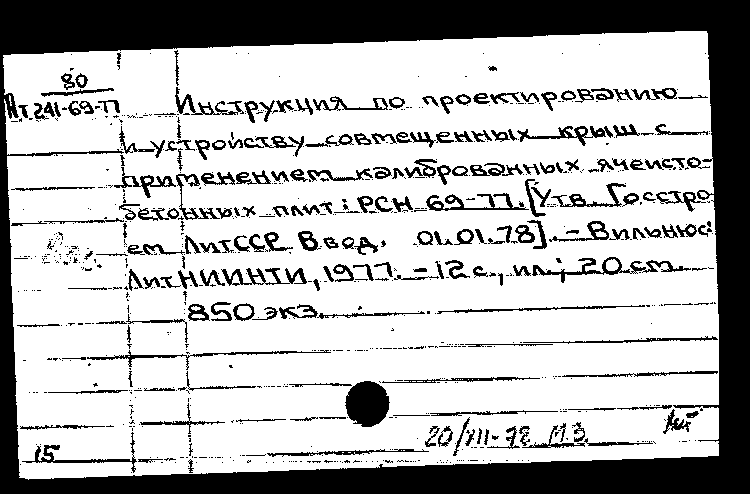 80
Ит 241-69-77
Инструкция по проектированию
и устройству совмещенных крыш с
применением калиброванных ячеисто-
бетонных плит: РСН 69-77. [Утв. Госстро
ем ЛитССР Ввод. 01.01.78]. - Вильнюс:
ЛитНИИНТИ, 1977. - 12 с., ил.; 20 см.
850 экз.
20/VIII-78 М.З.
15